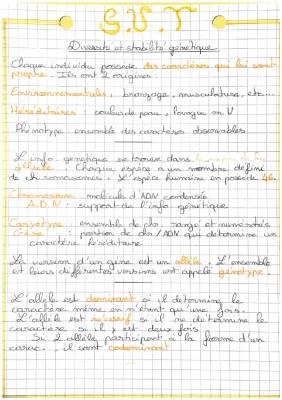 S.V.T
Diversité et stabilité génétique
Chaque individu possède des caractères qui lui sont
propre. Ils ont 2 origines
Environnementals : bronzage, musculature, etc...
Héréditaires : couleur de peau, langue en U
Phénotype : ensemble des caractères observables
L'info génétique se trouve dans
cellule. Chaque espèce a un nombre défini
de chromosomes. L'espèce humaine en possède 46.
Chromosome : molécule d'ADN condensée
A.D.N : support de l'info génétique
Caryotype : ensemble de chr. rangé et numérotés
Gène : portion de chr/ADN qui détermine un
caractère héréditaire
La version d'un gène est un allèle. L'ensemble
et leurs différentes versions est appelé génotype.
L'allèle est dominant si il détermine le
caractère même en n'étant qu'une fois.
L'allèle est récessif si il ne détermine le
caractère si il y est deux fois
Si 2 allèle participent à la forme d'un
carac. il sont codominant.